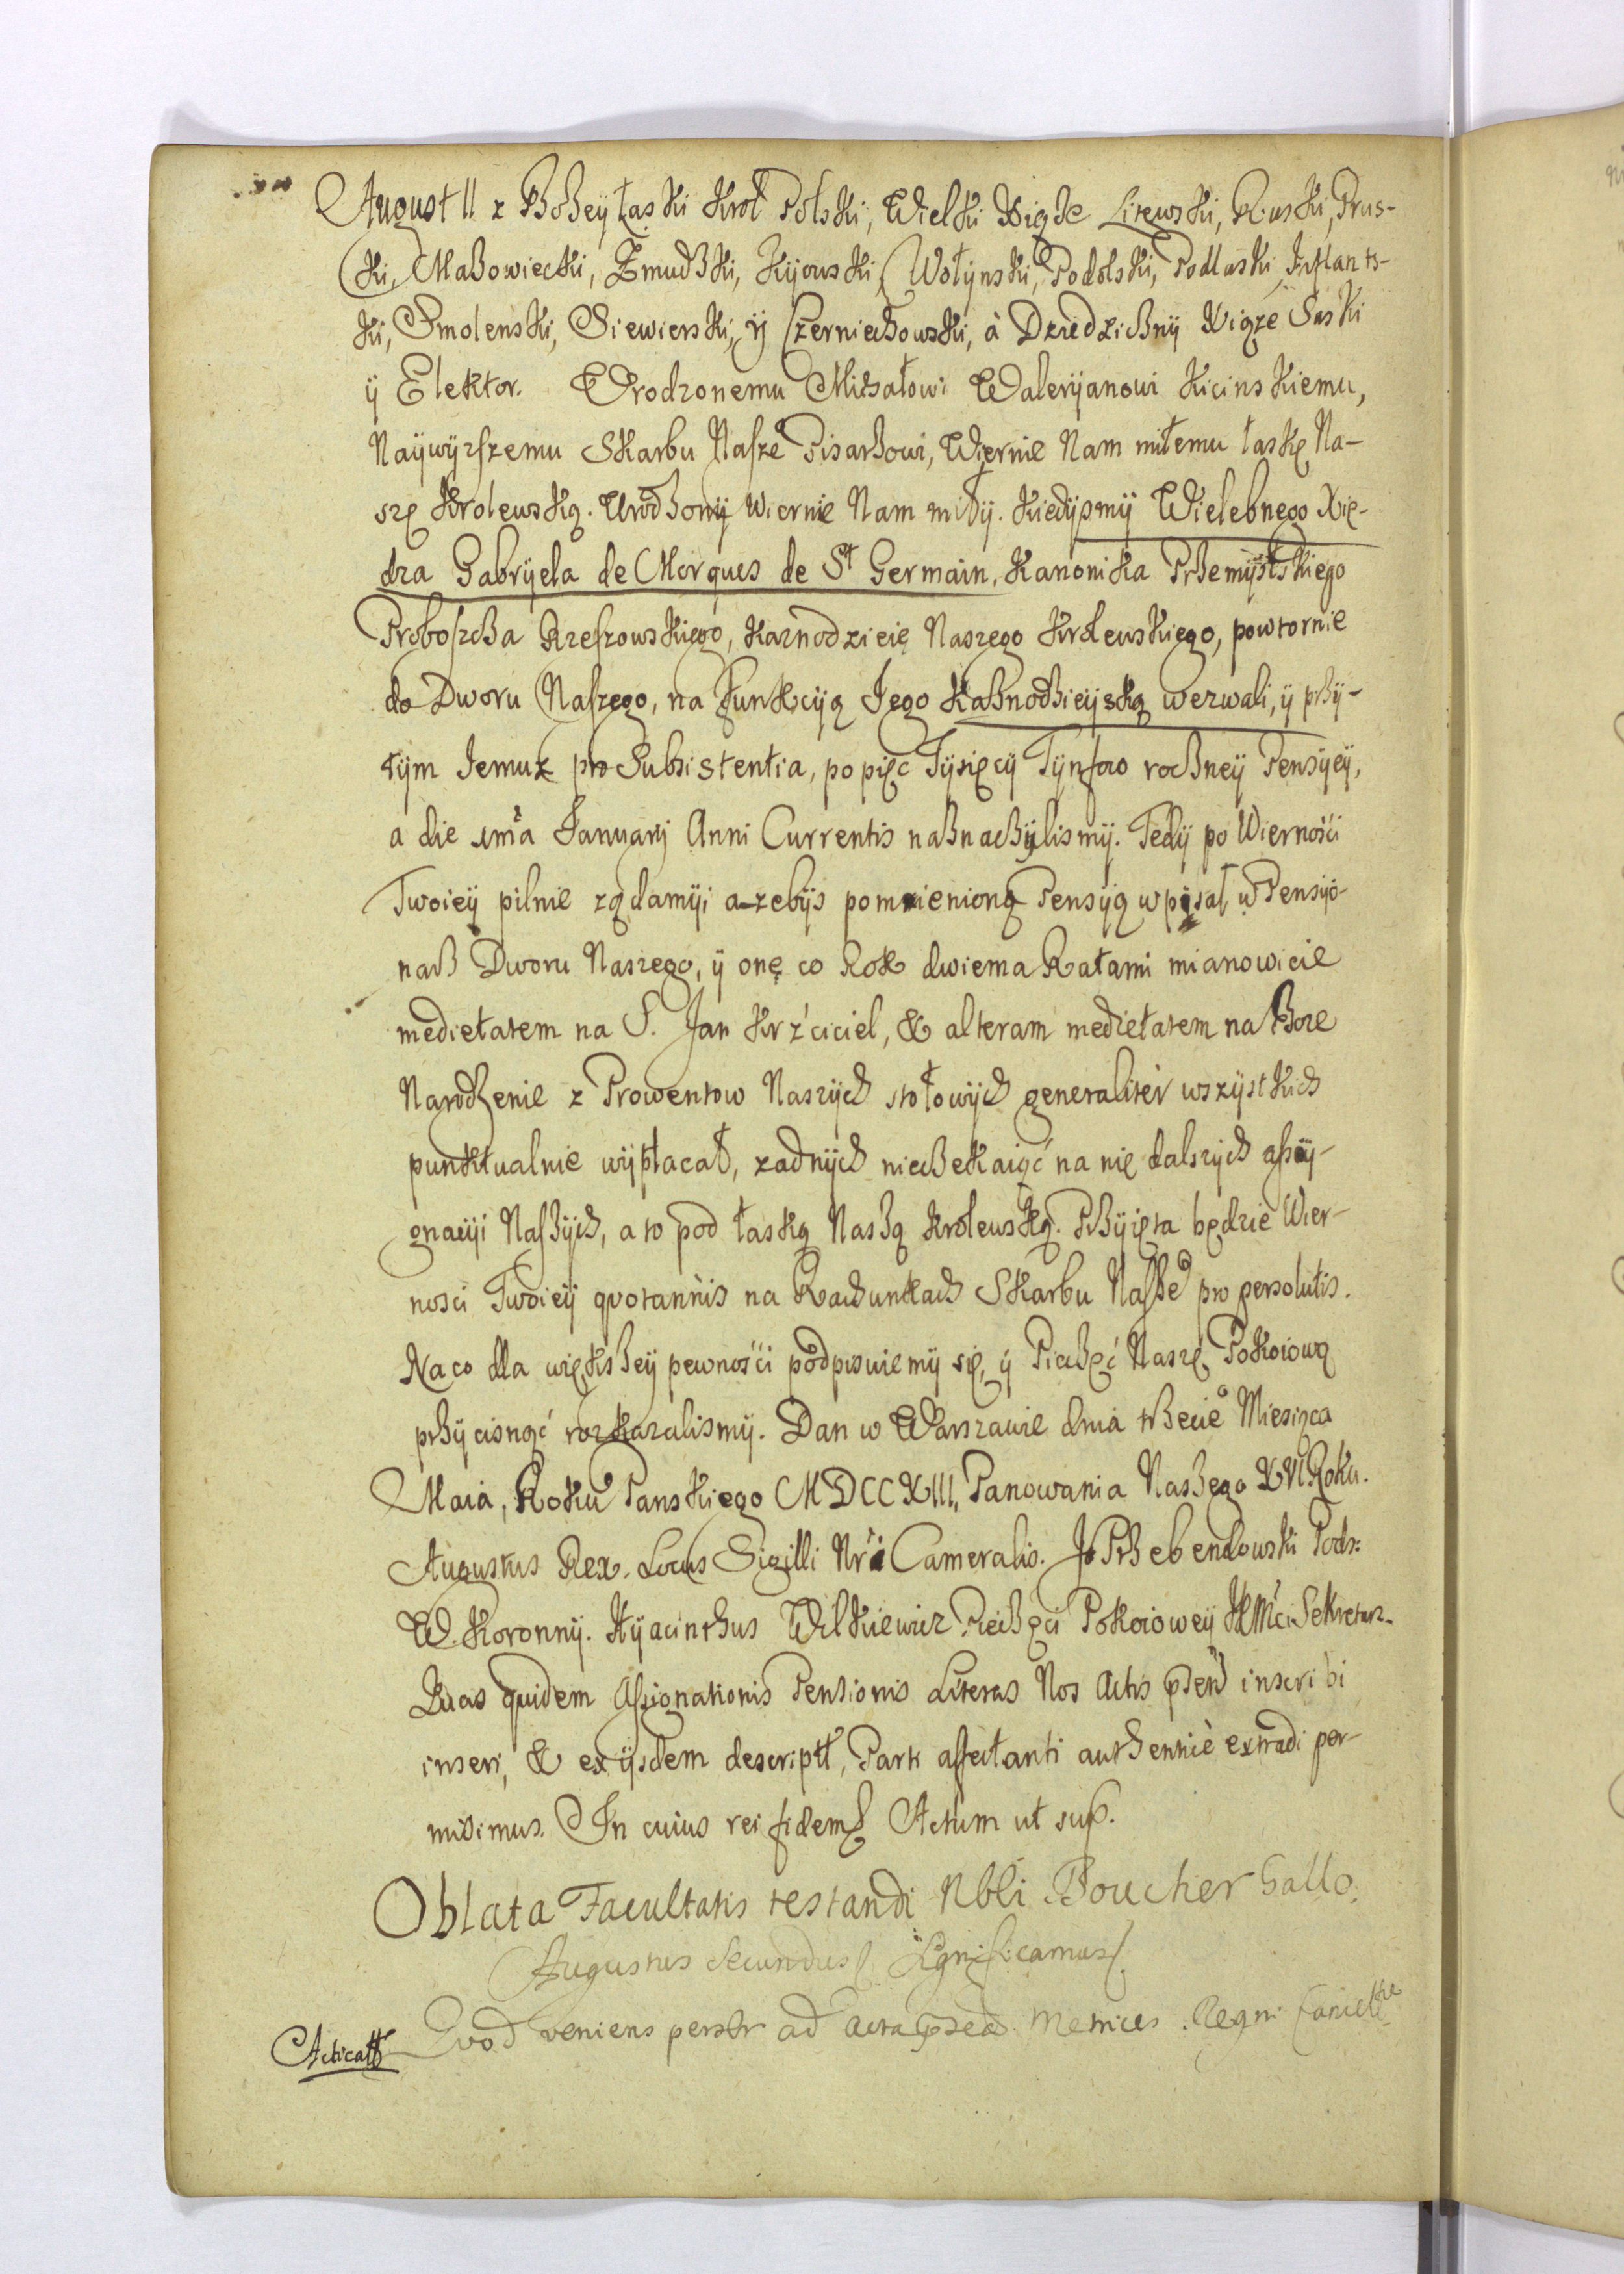 August II z Bożey łaski Krol Polski, Wielki Xiąże Litewski, Ruski, Prus-
ki, Mazowiecki, Zmudzki, Kijowski, Wołynski, Podolski, Podlaski, Inflants-
ki, Smolenski, Siewierski, ÿ Czerniechowski, à Dziedzicznÿ Xiąze Saski
ÿ Elektor. Urodzonemu Michałowi Walerÿanowi Kicinskiemu,
Naÿwyzszemu Skarbu Nasze⁰ Pisarzowi, Wiernie Nam miłemu łaskę Na-
szę Krolewską. Urodzonÿ Wiernie Nam miłÿ. Kiedÿsmÿ Wielebnego Xię-
dza Gabrÿela de Morques de St Germain, Kanonika Przemÿslskiego
Proboszcza Rzeszowskiego, Kaznodzieię Naszego Krolewskiego, powtornie
do Dworu Naszego, na Funkcÿą Jego Kaznodzieÿską wezwali, ÿ przÿ-
tÿm Jemuz pro Subsistentia, po pięc Tÿsięcÿ Tÿnfow rocznеÿ Pensÿeÿ,
a die 1ma Januarÿ Anni Currentis naznaczÿlismÿ. Tedÿ po Wierności
Twoieÿ pilnie ządamÿ, azebÿs pomienioną Pensÿą wpisał w Pensÿo-
nacz Dworu Naszego, ÿ onę co Rok dwiema Ratami mianowicie
medietatem na S. Jan Krzciciel, & alteram medietatem na Boze
Narodzenie z Prowentow Naszÿch stołowÿch generalitèr wszÿstkich
punktualnie wÿpłacał, zadnÿch nieczekaiąć na nię dalszÿch assÿ-
gnacÿi Naszÿch, a to pod łaską Naszą Krolewską. Przÿięta będzie Wier-
nosci Twoieÿ quotannis na Rachunkach Skarbu Nasze⁰ pro persolutis.
Na co dla większeÿ pewności podpisuiemÿ się, ÿ Pieczęć Naszę Pokoiową
przÿcisnąć rozkazalismÿ. Dan w Warszawie dnia trzecie⁰ Miesiąca
Maia, Roku Panskiego MDCCXIII, Panowania Naszego XVI Roku.
Augustus Rex. Locus Sigilli Nri Cameralis. J Przebendowski Pods:
W. Koronnÿ. Hÿacinthus Wilkiewicz Pieczęci Pokoioweÿ JKMci Sekretarz.
Quas quidem Assignationis Pensionis Literas Nos Actis pntbus inscribi
inseri, & exÿsdem descriptt, Parti affectanti authenticè extradi per-
misimus. In cuius rei fidem Actum ut sup.
Oblata Facultatis testandi Nbli Boucher Gallo.
Augustus Secundus Significamus
Acticatt Quod veniens persltr ad Acta pntia Metrices Regni Cancell